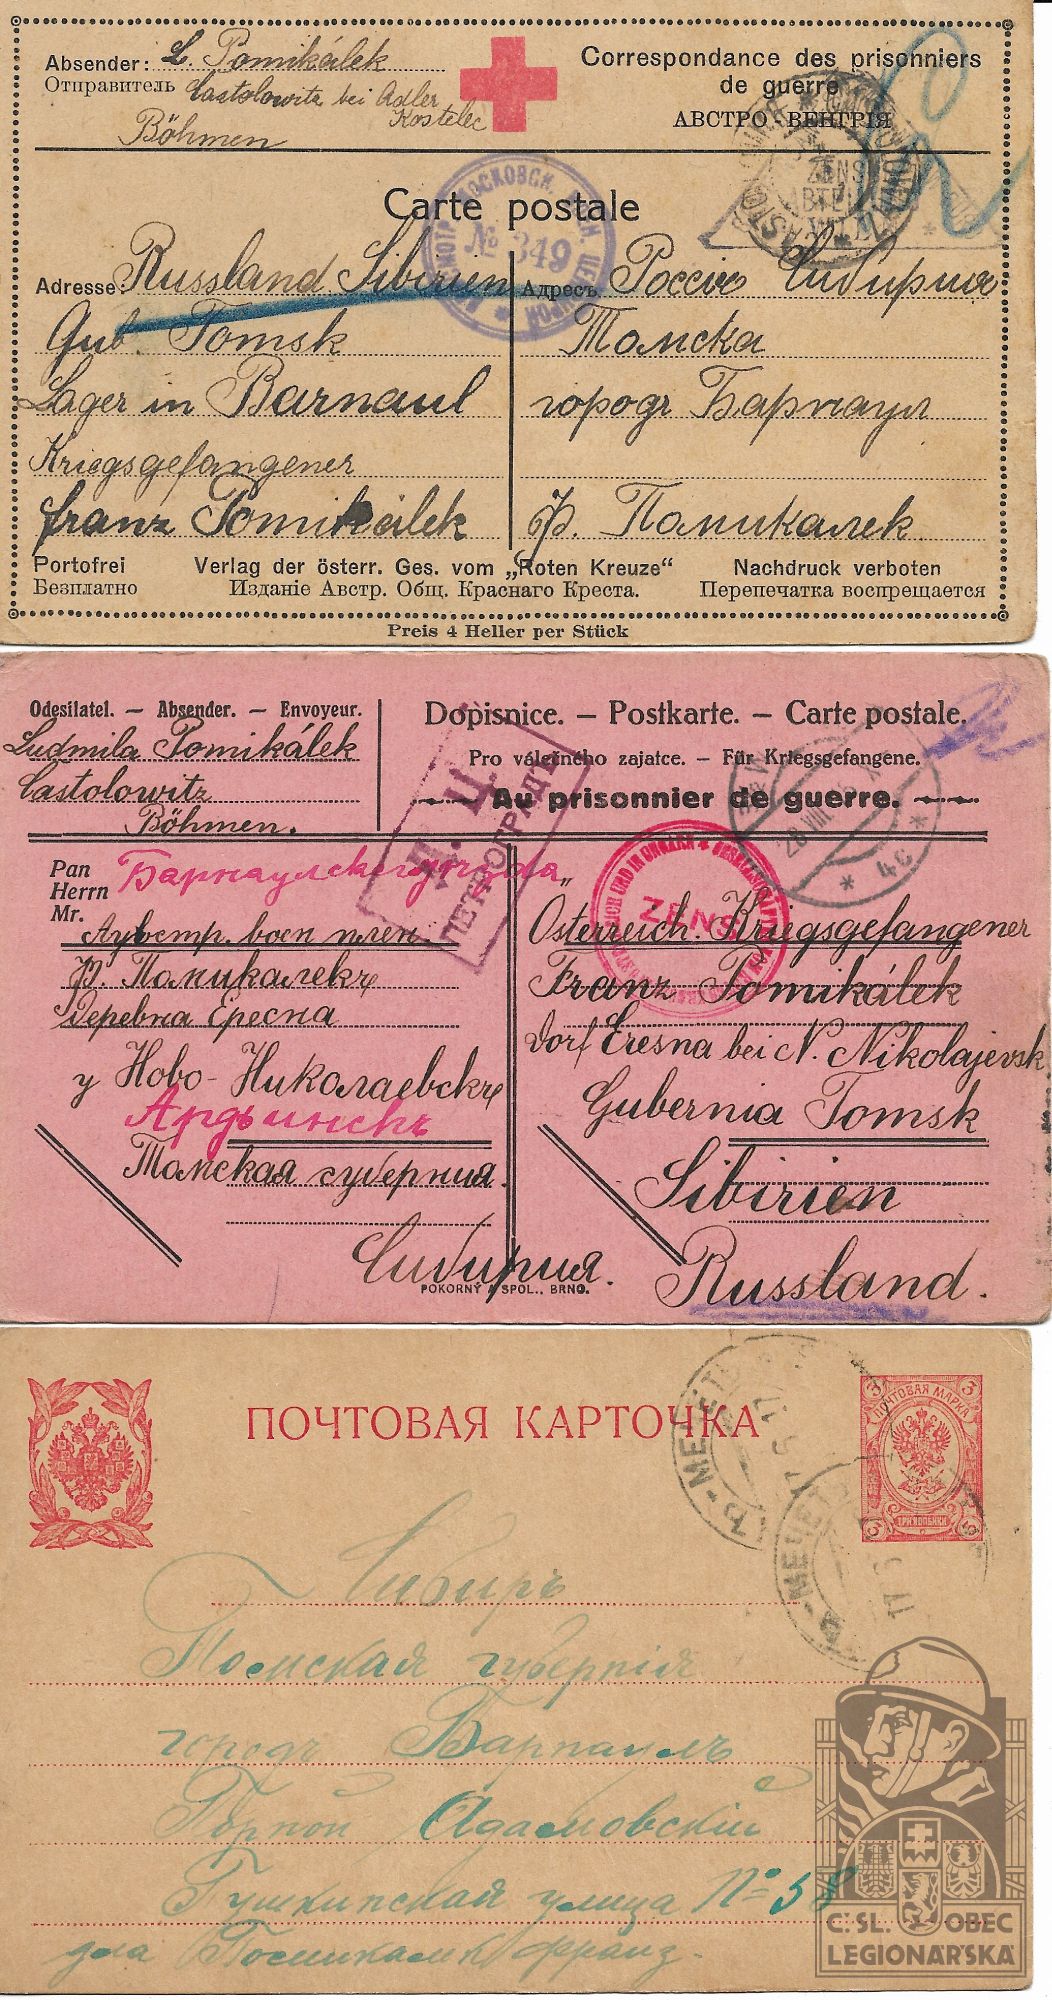 Absender: L. Pomikálek
Отправитель Castolowitz bei Adler
Kostelec
Böhmen
Correspondance des prisonniers
de guerre
АВСТРО-ВЕНГРІЯ
Carte postale
№ 349
ZENS
Adresse: Russland Sibirien
Gub. Tomsk
Lager in Barnaul
Kriegsgefangener
Franz Pomikálek
Адресъ Россіе Сибирия
Томска
городг Барнаул
Ф. Помикалек.
Portofrei Verlag der österr. Ges. vom „Roten Kreuze“ Nachdruck verboten
Безплатно Изданіе Австр. Общ. Краснаго Креста. Перепечатка воспрещается
Preis 4 Heller per Stück
Odesilatel. — Absender. — Envoyeur.
Ludmila Pomikálek
Castolowitz
Böhmen.
Dopisnice. — Postkarte. — Carte postale.
Pro válečného zajatce. — Für Kriegsgefangene.
Au prisonnier de guerre.
В. Ц.
ПЕТРОГРАДЪ
ZENS
28 VIII
4c
Pan
Herrn
Mr.
воен плен.
Ф. Помикалекъ
Деревна Ересна
у Ново-Николаевскъ
Томская губерния.
Сибирия.
Österreich. Kriegsgefangener
Franz Pomikálek
Dorf Eresna bei N. Nikolajevsk
Gubernia Tomsk
Sibirien
Russland.
POKORNÝ A SPOL., BRNO.
ПОЧТОВАЯ КАРТОЧКА
3 3
ПОЧТОВАЯ МАРКА
ТРИ КОПѢЙКИ
3 3
Сибирь
Томская губернія
городъ Барнаулъ
Адамовскій
улица № 58
для Помикалек Франц.
Č. SL. OBEC
LEGIONÁŘSKÁ